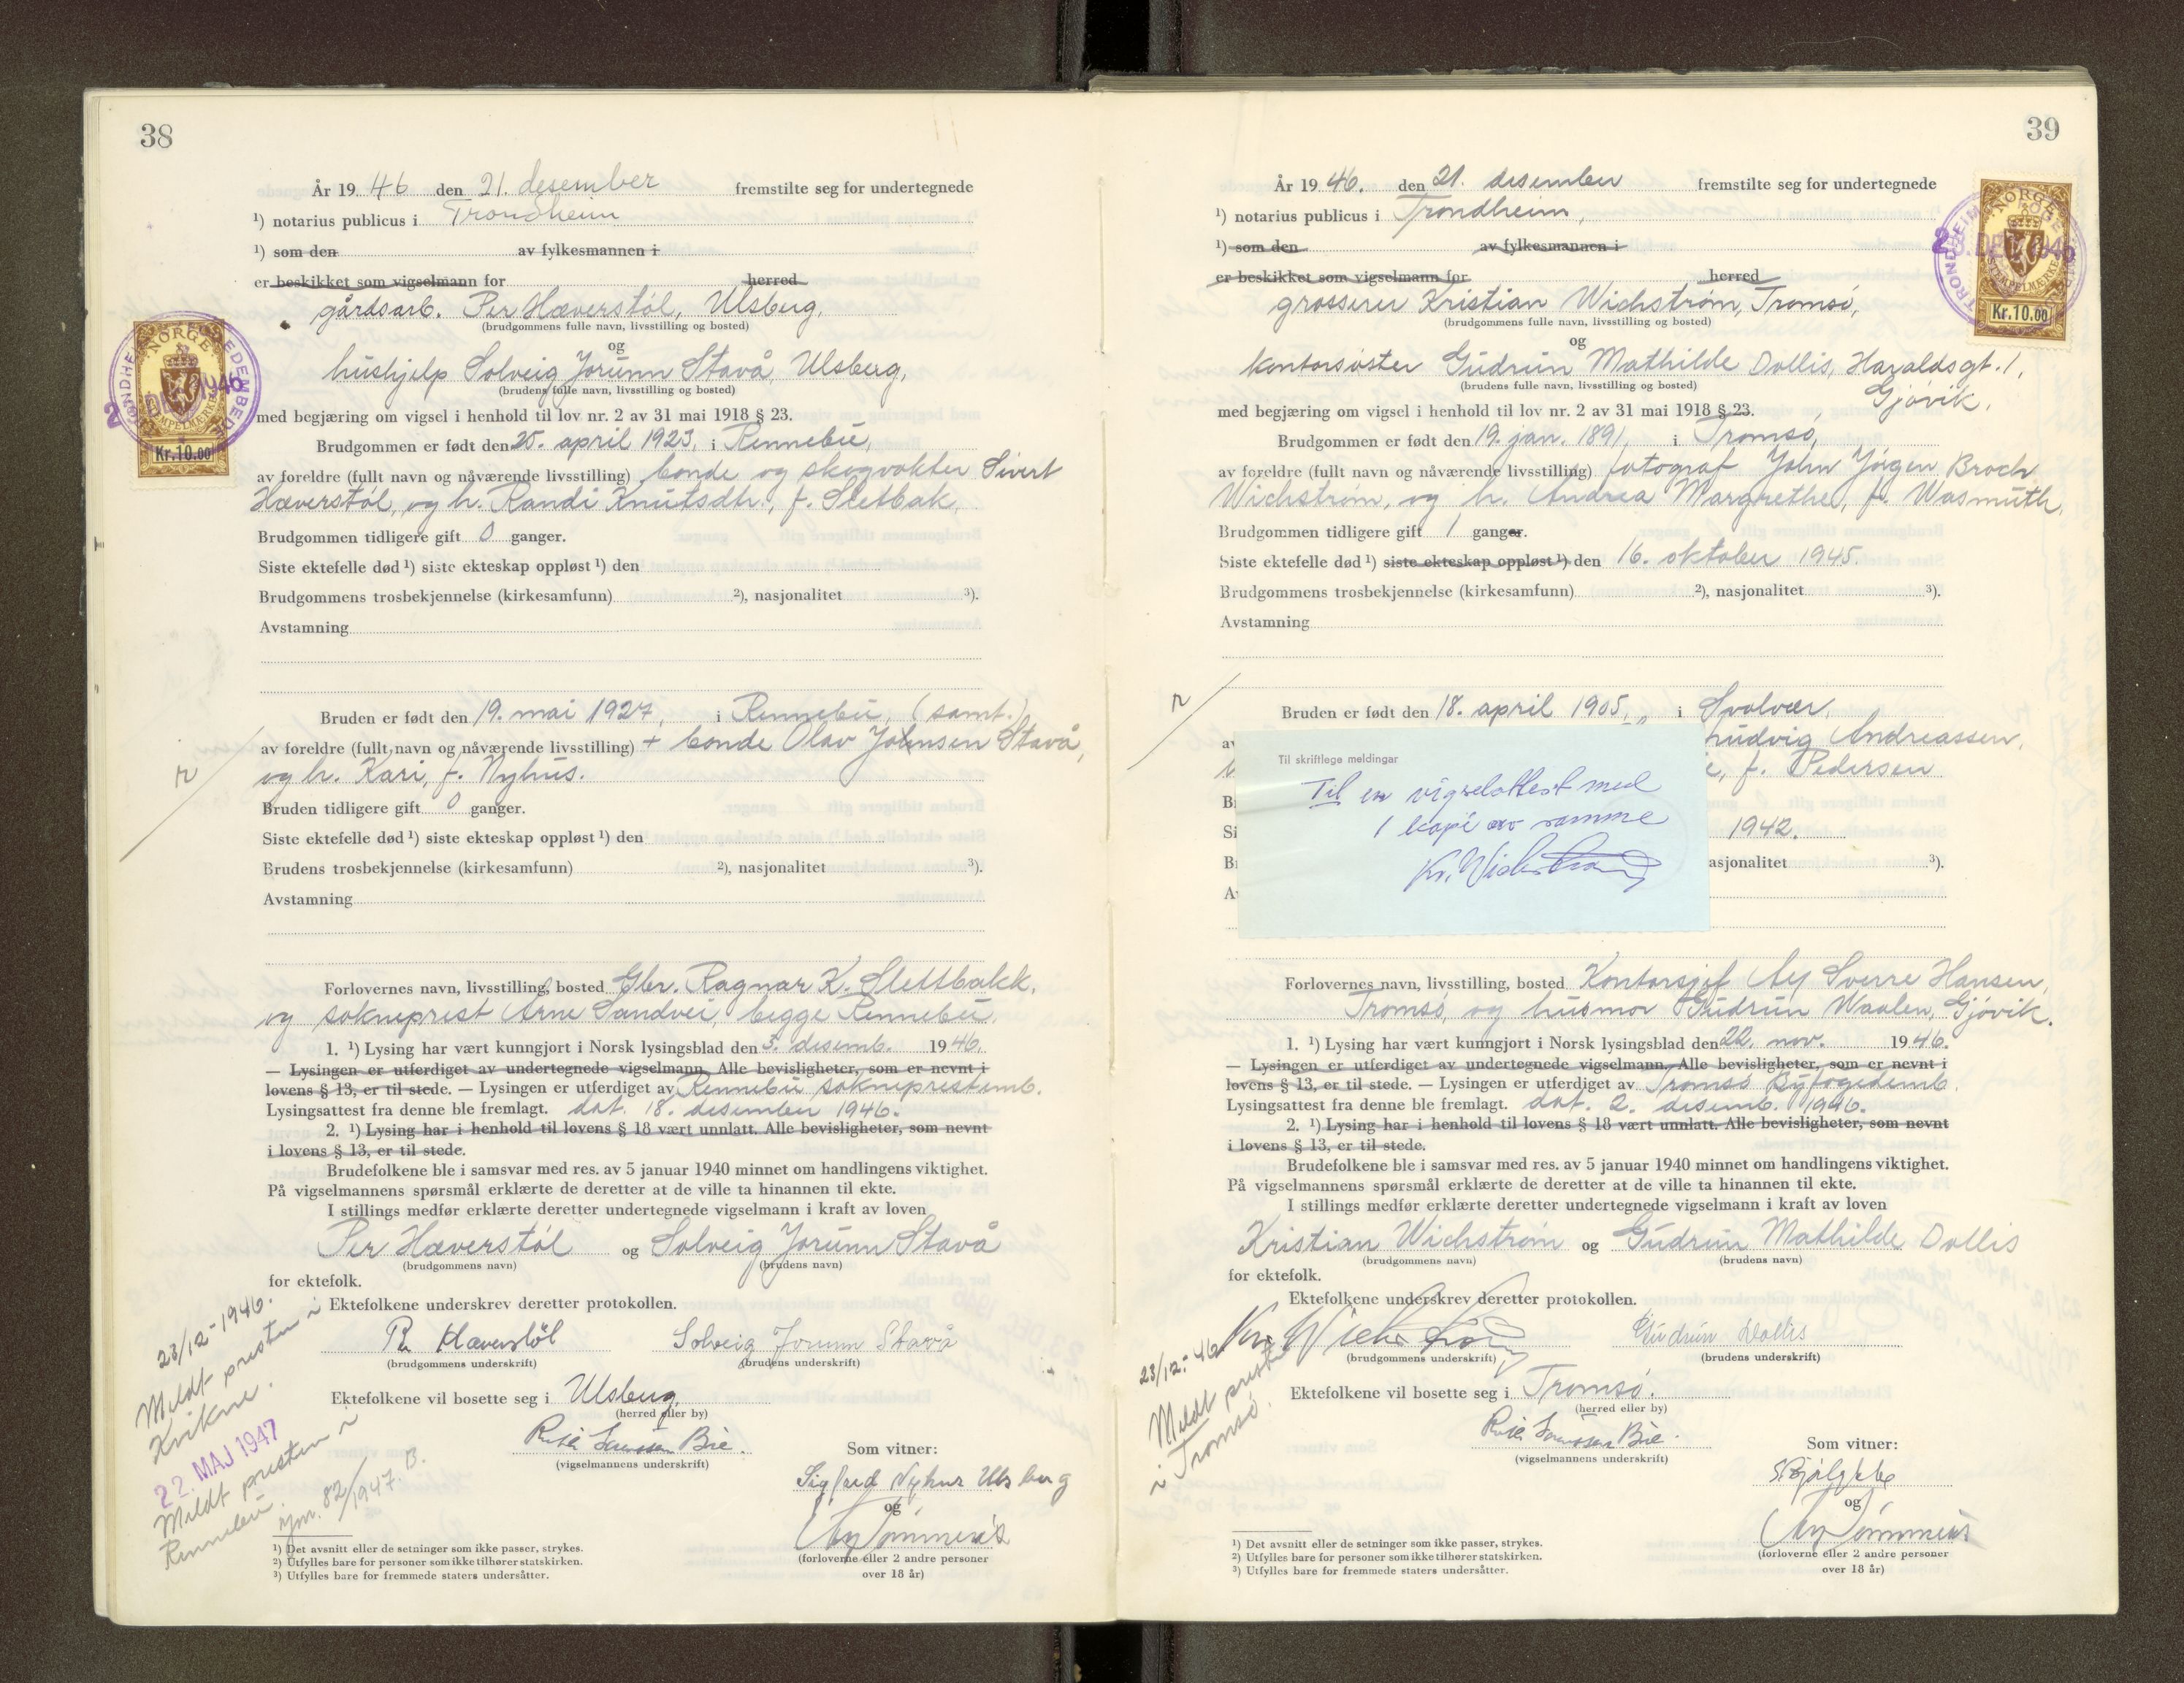 38
År 19 46 den 21. desember fremstilte seg for undertegnede
¹) notarius publicus i Trondheim
¹) som den av fylkesmannen i
er beskikket som vigselmann for herred
gårdsarb. Per Hæverstøl, Ulsberg,
(brudgommens fulle navn, livsstilling og bosted)
og
hushjelp Solveig Jorunn Stavå, Ulsberg,
(brudens fulle navn, livsstilling og bosted)
med begjæring om vigsel i henhold til lov nr. 2 av 31 mai 1918 § 23.
Brudgommen er født den 25. april 1923, i Rennebu,
av foreldre (fullt navn og nåværende livsstilling) bonde og skogvokter Sivert
Hæverstøl, og h. Randi Knutsdtr., f. Sletbak.
Brudgommen tidligere gift 0 ganger.
Siste ektefelle død ¹) siste ekteskap oppløst ¹) den
Brudgommens trosbekjennelse (kirkesamfunn) ²), nasjonalitet ³).
Avstamning
Bruden er født den 19. mai 1927, i Rennebu, (samt.)
av foreldre (fullt navn og nåværende livsstilling) + bonde Olav Johnsen Stavå,
og h. Kari, f. Nyhus.
Bruden tidligere gift 0 ganger.
Siste ektefelle død ¹) siste ekteskap oppløst ¹) den
Brudens trosbekjennelse (kirkesamfunn) ²), nasjonalitet ³).
Avstamning
Forlovernes navn, livsstilling, bosted Gbr. Ragnar K. Slettbakk,
og sokneprest Arne Sandvei, begge Rennebu.
1. ¹) Lysing har vært kunngjort i Norsk lysingsblad den 3. desemb. 19 46.
— Lysingen er utferdiget av undertegnede vigselmann. Alle bevisligheter, som er nevnt i
lovens § 13, er til stede. — Lysingen er utferdiget av Rennebu sokneprestemb.
Lysingsattest fra denne ble fremlagt. dat. 18. desember 1946.
2. ¹) Lysing har i henhold til lovens § 18 vært unnlatt. Alle bevisligheter, som nevnt
i lovens § 13, er til stede.
Brudefolkene ble i samsvar med res. av 5 januar 1940 minnet om handlingens viktighet.
På vigselmannens spørsmål erklærte de deretter at de ville ta hinannen til ekte.
I stillings medfør erklærte deretter undertegnede vigselmann i kraft av loven
Per Hæverstøl og Solveig Jorunn Stavå
(brudgommens navn) (brudens navn)
for ektefolk.
Ektefolkene underskrev deretter protokollen.
Per Hæverstøl Solveig Jorunn Stavå
(brudgommens underskrift) (brudens underskrift)
Ektefolkene vil bosette seg i Ulsberg.
(herred eller by)
(vigselmannens underskrift)
Som vitner:
Sigfred Nyhus Ulsberg
og
(forloverne eller 2 andre personer
over 18 år)
23/12-1946.
Meldt presten i
Kvikne.
22. MAJ 1947
Meldt presten i
Rennebu.
jnr. 82/1947. B.
¹) Det avsnitt eller de setninger som ikke passer, strykes.
²) Utfylles bare for personer som ikke tilhører statskirken.
³) Utfylles bare for fremmede staters undersåtter.
NORGE
STEMPELMERKE
Kr.10.00
39
År 19 46. den 21. desember fremstilte seg for undertegnede
¹) notarius publicus i Trondheim,
¹) som den av fylkesmannen i
er beskikket som vigselmann for herred
grosserer Kristian Wichstrøm, Tromsø,
(brudgommens fulle navn, livsstilling og bosted)
og
kontorsøster Gudrun Mathilde Dollis, Haraldsgt. 1,
Gjøvik.
(brudens fulle navn, livsstilling og bosted)
med begjæring om vigsel i henhold til lov nr. 2 av 31 mai 1918 § 23.
Brudgommen er født den 19. jan. 1891, i Tromsø,
av foreldre (fullt navn og nåværende livsstilling) fotograf John Jörgen Broch
Wichstrøm, og h. Andrea Margrethe, f. Wasmuth.
Brudgommen tidligere gift 1 ganger.
Siste ektefelle død ¹) siste ekteskap oppløst ¹) den 16. oktober 1945.
Brudgommens trosbekjennelse (kirkesamfunn) ²), nasjonalitet ³).
Avstamning
Bruden er født den 18. april 1905, i Svolvær,
Ludvig Andreassen,
f. Pedersen
1942.
asjonalitet ³).
Til skriftlege meldingar
Til en vigselattest med
1 kopi av samme
Kr. Wichstrøm
Forlovernes navn, livsstilling, bosted Kontorsjef Sverre Hansen,
Tromsø, og husmor Gudrun Waalen, Gjøvik.
1. ¹) Lysing har vært kunngjort i Norsk lysingsblad den 22. nov. 19 46.
— Lysingen er utferdiget av undertegnede vigselmann. Alle bevisligheter, som er nevnt i
lovens § 13, er til stede. — Lysingen er utferdiget av Tromsø Byfogedemb.
Lysingsattest fra denne ble fremlagt. dat. 2. desemb. 1946.
2. ¹) Lysing har i henhold til lovens § 18 vært unnlatt. Alle bevisligheter, som nevnt
i lovens § 13, er til stede.
Brudefolkene ble i samsvar med res. av 5 januar 1940 minnet om handlingens viktighet.
På vigselmannens spørsmål erklærte de deretter at de ville ta hinannen til ekte.
I stillings medfør erklærte deretter undertegnede vigselmann i kraft av loven
Kristian Wichstrøm og Gudrun Mathilde Dollis
(brudgommens navn) (brudens navn)
for ektefolk.
Ektefolkene underskrev deretter protokollen.
Kr. Wichstrøm Gudrun Dollis
(brudgommens underskrift) (brudens underskrift)
Ektefolkene vil bosette seg i Tromsø.
(herred eller by)
(vigselmannens underskrift)
Som vitner:
og
(forloverne eller 2 andre personer
over 18 år)
23/12-46
Meldt presten
i Tromsø.
¹) Det avsnitt eller de setninger som ikke passer, strykes.
²) Utfylles bare for personer som ikke tilhører statskirken.
³) Utfylles bare for fremmede staters undersåtter.
NORGE
STEMPELMERKE
Kr.10.00